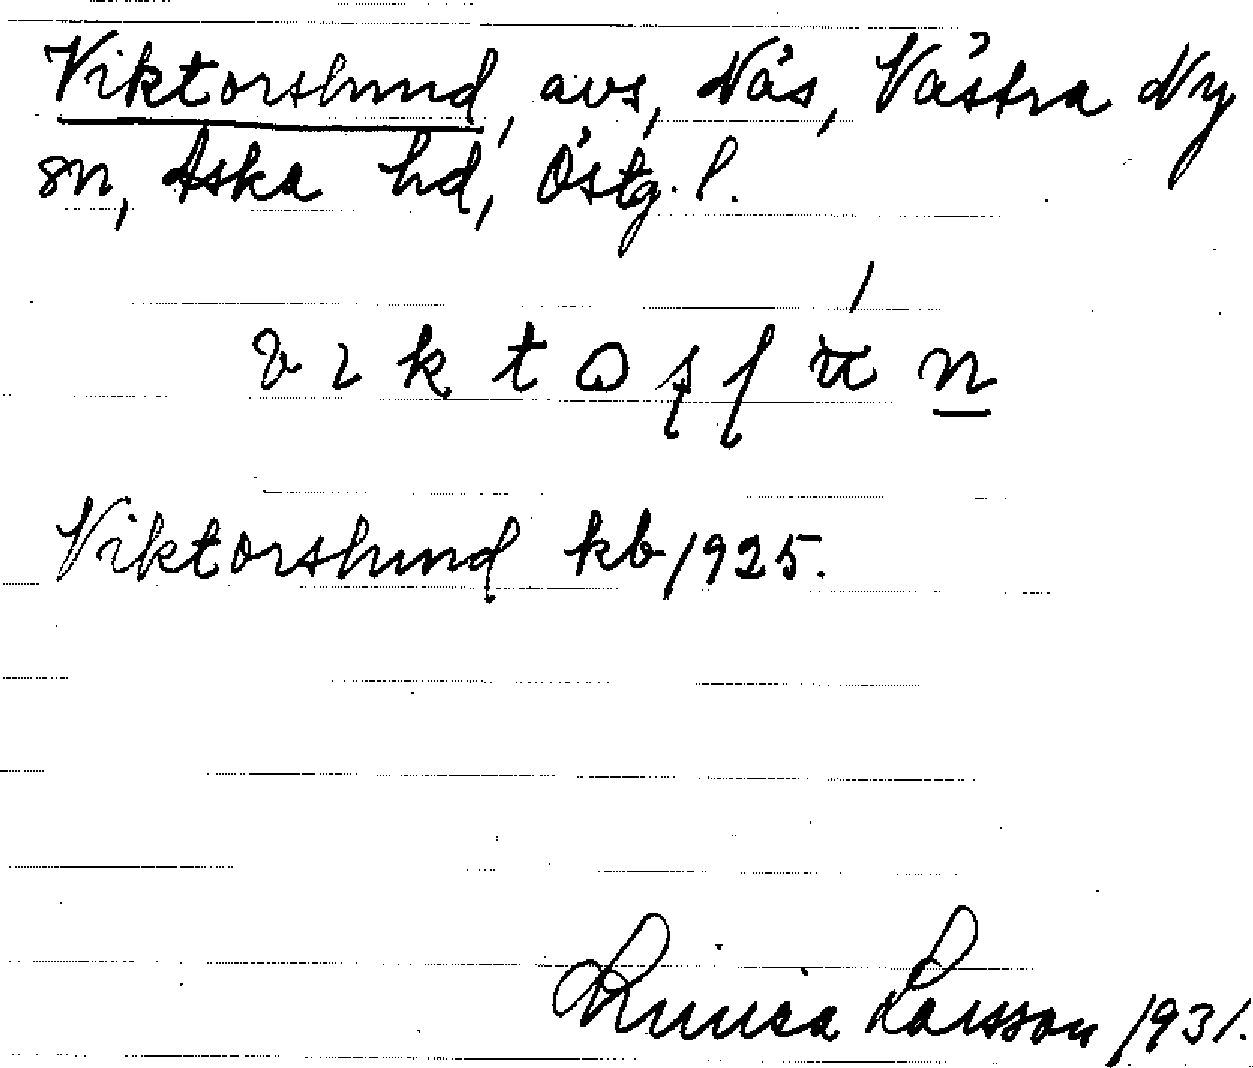 Viktorslund, avs, Näs, Västra Ny
sn, Aska hd, Östg. l.
Viktorslund kb 1925.
Larsson 1931.